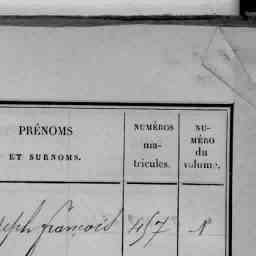 PRÉNOMS
ET SURNOMS.
NUMÉROS
ma-
tricules.
NU-
MÉRO
du
volume.
seph françois 457